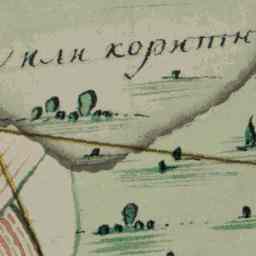 или коритн